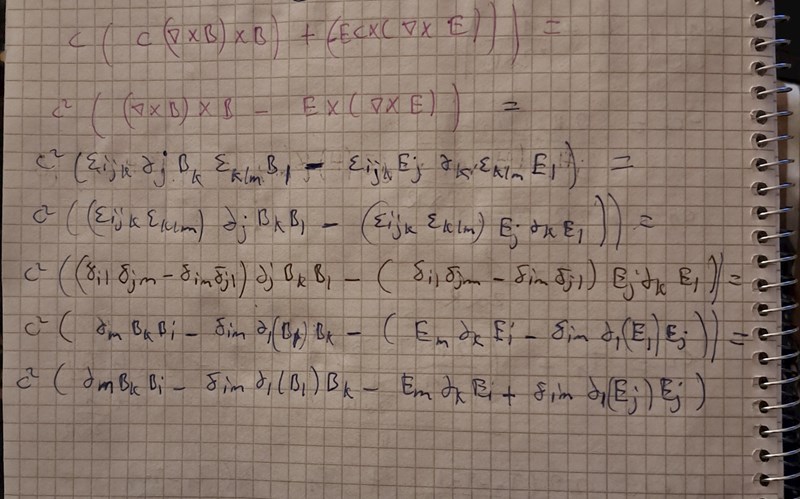 c ( c (∇×B)×B) + (Ec×(∇× E))) =
c² ( (∇×B)×B − E×(∇×E) ) =
c² (εijk ∂j Bk εklm Bl − εijk Ej ∂k εklm El) =
c² ((εijk εklm) ∂j BkBl − (εijk εklm) Ej ∂k El)) =
c² ((δil δjm − δim δjl) ∂j BkBl − ( δil δjm − δim δjl) Ej ∂k El)) =
c² ( ∂m BkBi − δim ∂l(Bk)Bk − ( Em ∂k Ei − δim ∂l(El)Ej)) =
c² ( ∂m BkBi − δim ∂l(Bl)Bk − Em ∂k Ei + δim ∂l(Ej)Ej)